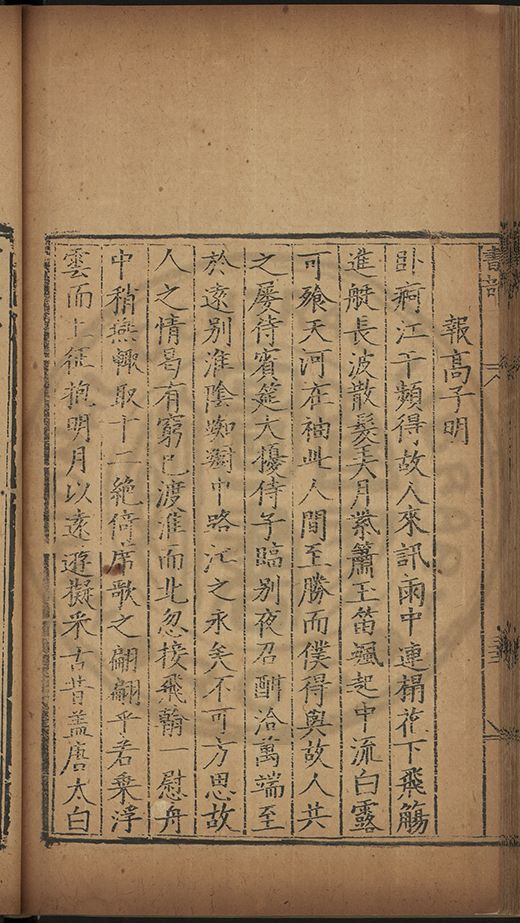 書部
八
報高子明
卧痾江干頻得故人來訊雨中連榻花下飛觴
進艇長波散髮弄月紫簫玉笛颯起中流白露
可飱天河在袖此人間至勝而僕得與故人共
之屢侍賓筵大擾侍子臨别夜召酣洽萬端至
於遠别淮陰踟躕中路江之永矣不可方思故
人之情曷有窮已渡淮而北忽接飛翰一慰舟
中稍燕輙取十二絶倚席歌之翩翩乎若乗浮
雲而上征抱明月以遠遊擬釆古昔盖唐太白